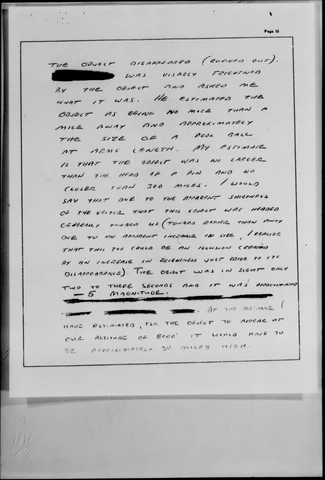 Page 10
THE OBJECT DISAPPEARED (BURNED OUT).
WAS VISABLY FRIGHTENED
BY THE OBJECT AND ASKED ME
WHAT IT WAS. HE ESTIMATED THE
OBJECT AS BEING NO MORE THAN A
MILE AWAY AND APPROXIMATELY
THE SIZE OF A POOL BALL
AT ARMS LENGTH. MY ESTIMATE
IS THAT THE OBJECT WAS NO LARGER
THAN THE HEAD OF A PIN AND NO
CLOSER THAN 300 MILES. I WOULD
SAY THAT DUE TO THE APPARENT SHORTNESS
OF THE VECTOR THAT THIS OBJECT WAS HEADED
GENERALLY TOWARD US (TOWARD RATHER THAN AWAY
DUE TO AN APPARENT INCREASE IN SIZE. I REALIZE
THAT THIS TOO COULD BE AN ILLUSION CREATED
BY AN INCREASE IN BRIGHTNESS JUST PRIOR TO ITS
DISAPPEARANCE). THE OBJECT WAS IN SIGHT ONLY
TWO TO THREE SECONDS AND IT WAS APPROXIMATELY
-5 MAGNITUDE.
AT THE DISTANCE I
HAVE ESTIMATED, FOR THE OBJECT TO APPEAR AT
OUR ALTITUDE OF 8000' IT WOULD HAVE TO
BE APPROXIMATELY 50 MILES HIGH.